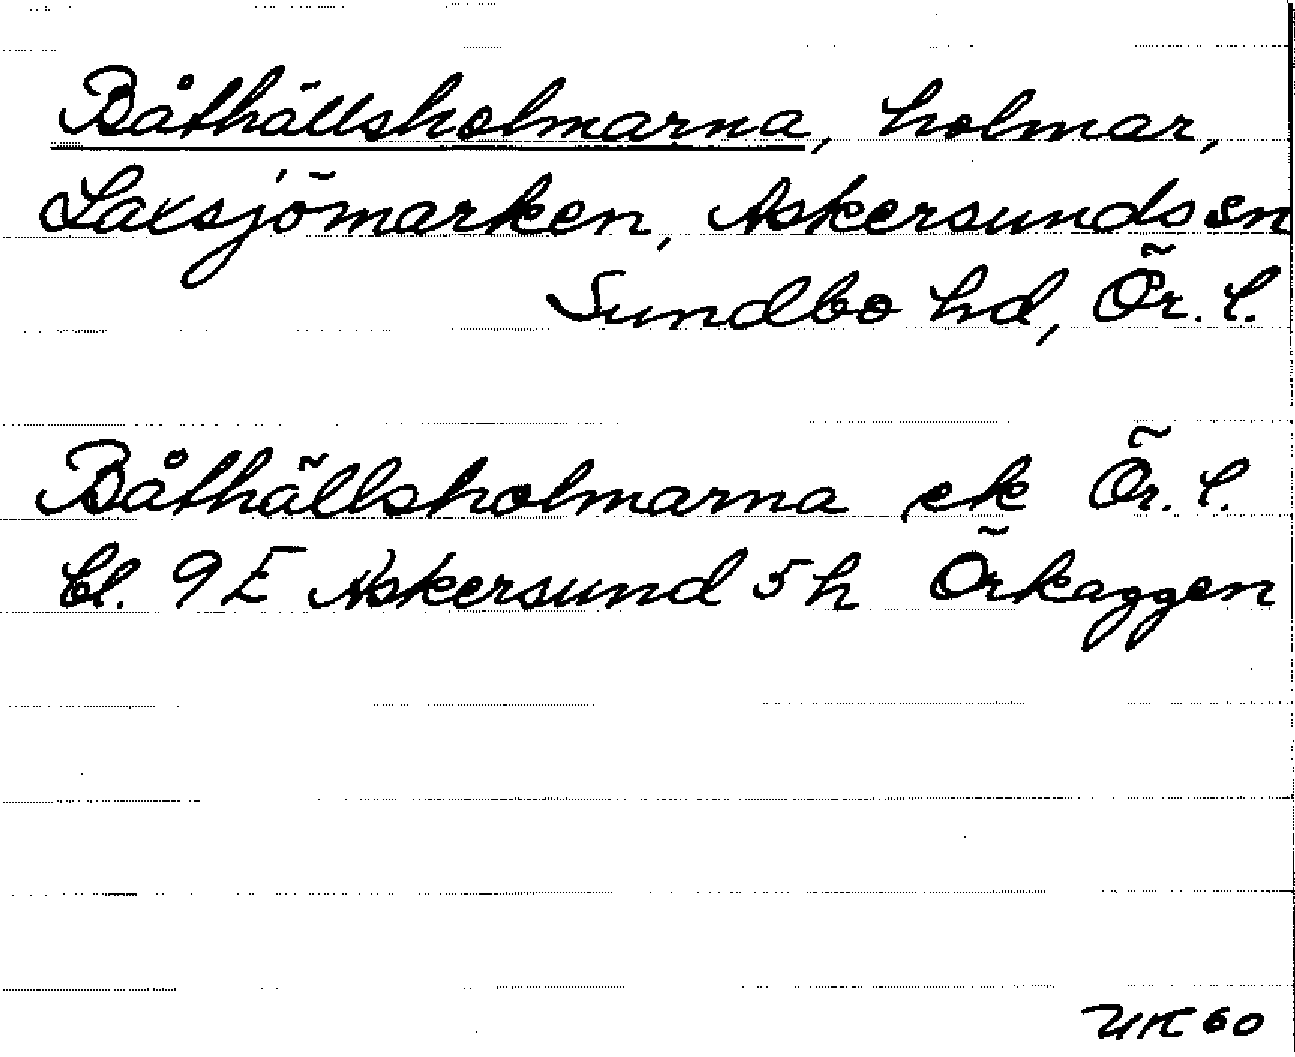 Båthällsholmarna, holmar,
Laxsjömarken, Askersunds sn
Sundbo hd, Ör. l.
Båthällsholmarna ek Ör. l.
bl. 9E Askersund 5h Örkaggen
UK 60